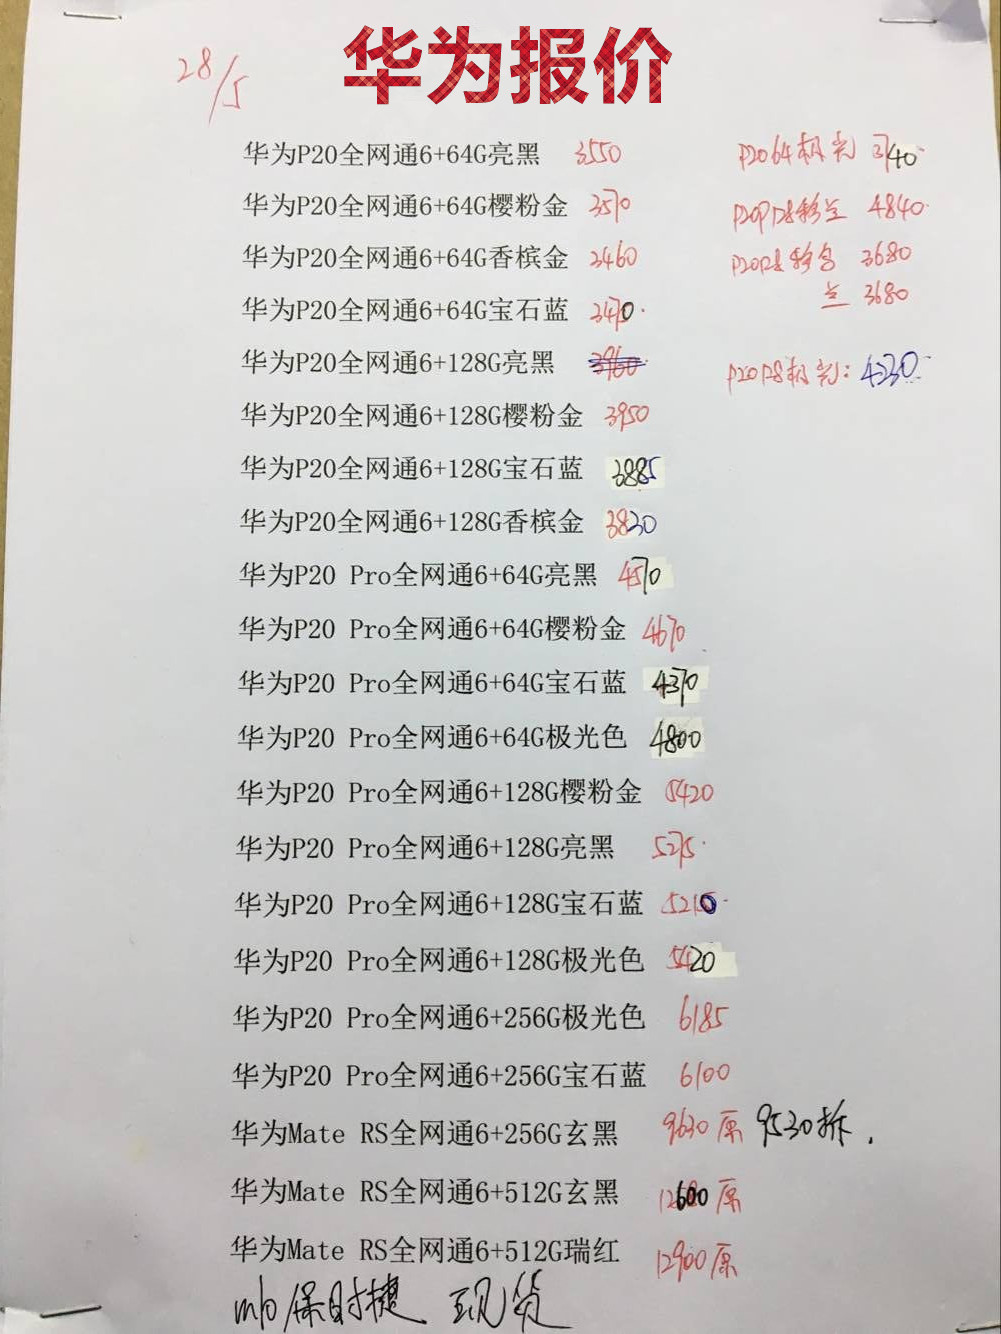 华为报价
28/5
华为P20全网通6+64G亮黑 3550
P20 64极光 3740
华为P20全网通6+64G樱粉金 3570
P20P128移兰 4840
华为P20全网通6+64G香槟金 3460
P20128移 3680
华为P20全网通6+64G宝石蓝 3470
兰 3680
华为P20全网通6+128G亮黑
P20128极光: 4230
华为P20全网通6+128G樱粉金 3950
华为P20全网通6+128G宝石蓝 3885
华为P20全网通6+128G香槟金 3830
华为P20 Pro全网通6+64G亮黑 4570
华为P20 Pro全网通6+64G樱粉金 4670
华为P20 Pro全网通6+64G宝石蓝 4370
华为P20 Pro全网通6+64G极光色 4800
华为P20 Pro全网通6+128G樱粉金 5420
华为P20 Pro全网通6+128G亮黑 5275
华为P20 Pro全网通6+128G宝石蓝 5210
华为P20 Pro全网通6+128G极光色 5420
华为P20 Pro全网通6+256G极光色 6185
华为P20 Pro全网通6+256G宝石蓝 6100
华为Mate RS全网通6+256G玄黑 9630原 9530拆.
华为Mate RS全网通6+512G玄黑 12600原
华为Mate RS全网通6+512G瑞红 12900原
m10保时捷 现货